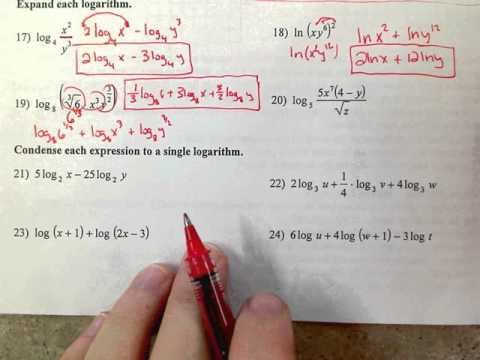 Expand each logarithm.
17) log₄ x²/y³ 2log₄x - log₄y³
2log₄x - 3log₄y
18) ln (xy⁶)² ln x² + ln y¹²
ln(x²y¹²) 2lnx + 12lny
19) log₈ (∛6 · x³y^(3/2)) 1/3 log₈6 + 3log₈x + 3/2 log₈y
6^(1/3)
log₈6^(1/3) + log₈x³ + log₈y^(3/2)
20) log₅ 5x⁷(4 − y)/√z
Condense each expression to a single logarithm.
21) 5 log₂ x − 25 log₂ y
22) 2 log₃ u + 1/4 · log₃ v + 4 log₃ w
23) log (x + 1) + log (2x − 3)
24) 6 log u + 4 log (w + 1) − 3 log t